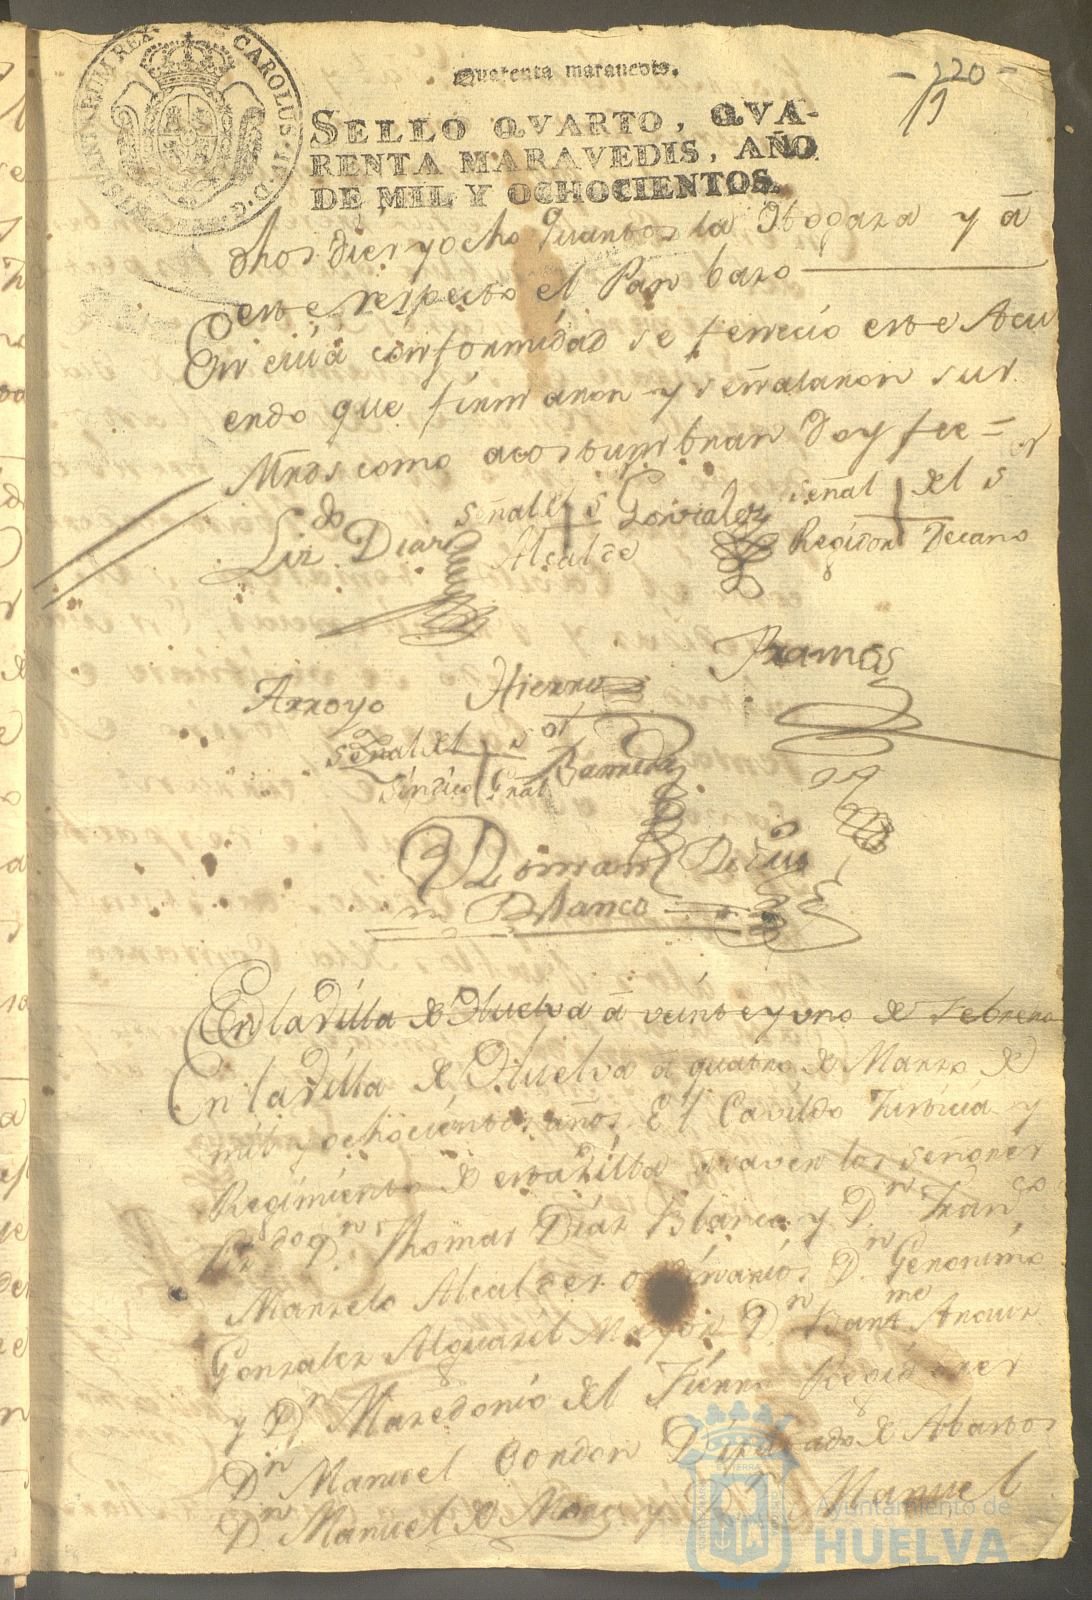 HISPANIARUM REX CAROLUS IV D. G.
Quarenta marauedis.
- 220 -
SELLO QVARTO, QVA-
RENTA MARAVEDIS, AÑO
DE MIL Y OCHOCIENTOS.
dhos diez y ocho quartos la Hogaza y á
este respecto el Pan bazo
En cuia conformidad se feneció este Acu
erdo que firmaron y señalaron sus
Mrds como acostumbran doy fee =
Lizdo Diaz señal del Sor Gonzalez señal del Sor
Alcalde Regidor Decano
Ramos
Arroyo Hierro
señal del Sor Barreda
Sindico Gral
Blanco
En la Villa de Huelva á veinte y uno de Febrero
En la Villa de Huelva á quatro de Marzo de
mil y ochocientos años. El Cavildo Justicia y
Regimiento de esta Villa á saver los señores
Lizdo Dn Thomas Diaz Blanco y Dn Franco
Manzelo Alcaldes ordinarios Dn Geronimo
Gonzalez Alguazil Mayor Dn Bartme
y Dn Mazedonio del Fierro Regidores
Dn Manuel Gordon Diputado de Abastos
Dn Manuel de Mora y Dn Manuel
Ayuntamiento de
HUELVA